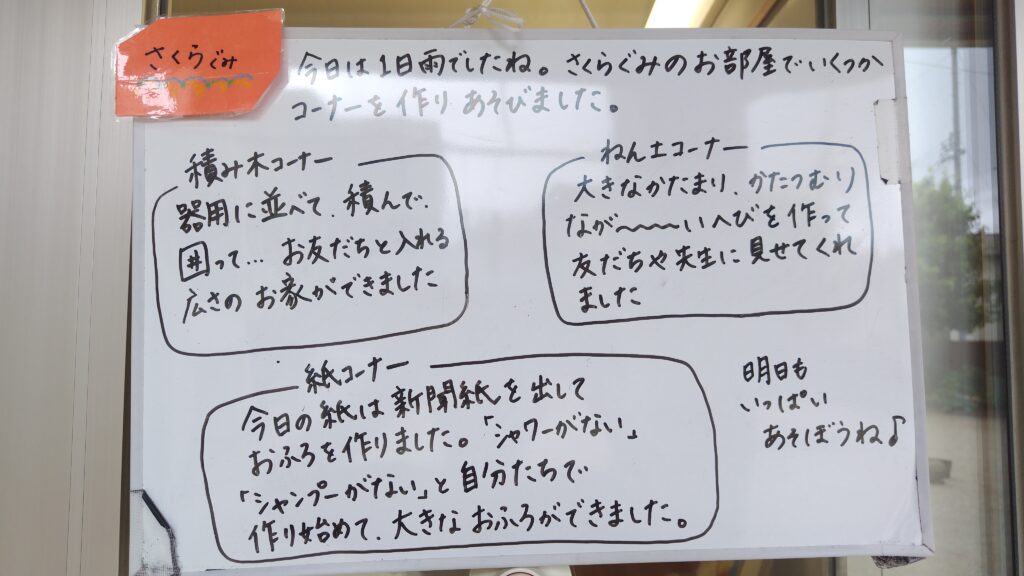 さくらぐみ
今日は1日雨でしたね。さくらぐみのお部屋でいくつか
コーナーを作りあそびました。
積み木コーナー
器用に並べて、積んで、
囲って… お友だちと入れる
広さの お家ができました
ねん土コーナー
大きなかたまり、かたつむり
なが〜〜〜いへびを作って
友だちや先生に見せてくれ
ました
紙コーナー
今日の紙は新聞紙を出して
おふろを作りました。「シャワーがない」
「シャンプーがない」と自分たちで
作り始めて、大きなおふろができました。
明日も
いっぱい
あそぼうね♪